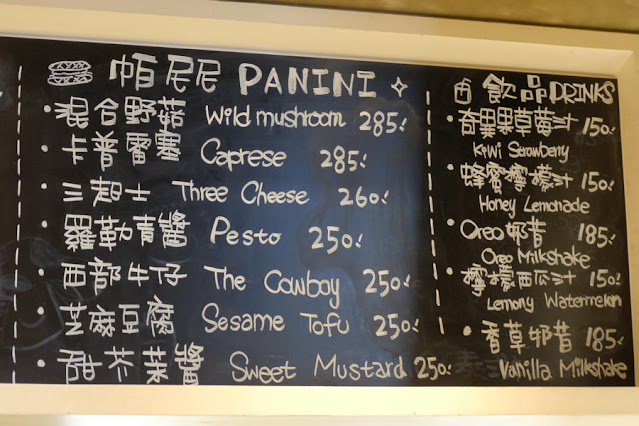 帕尼尼 PANINI
• 混合野菇 Wild mushroom 285.-
• 卡普雷塞 Caprese 285.-
• 三起士 Three Cheese 260.-
• 羅勒青醬 Pesto 250.-
• 西部牛仔 The Cowboy 250.-
• 芝麻豆腐 Sesame Tofu 250.-
• 甜芥茉醬 Sweet Mustard 250.-
飲品 DRINKS
• 奇異果草莓汁 150.-
Kiwi Strawberry
• 蜂蜜檸檬汁 150.-
Honey Lemonade
• Oreo奶昔 185.-
Oreo Milkshake
• 檸檬西瓜汁 150.-
Lemony Watermelon
• 香草奶昔 185.-
Vanilla Milkshake